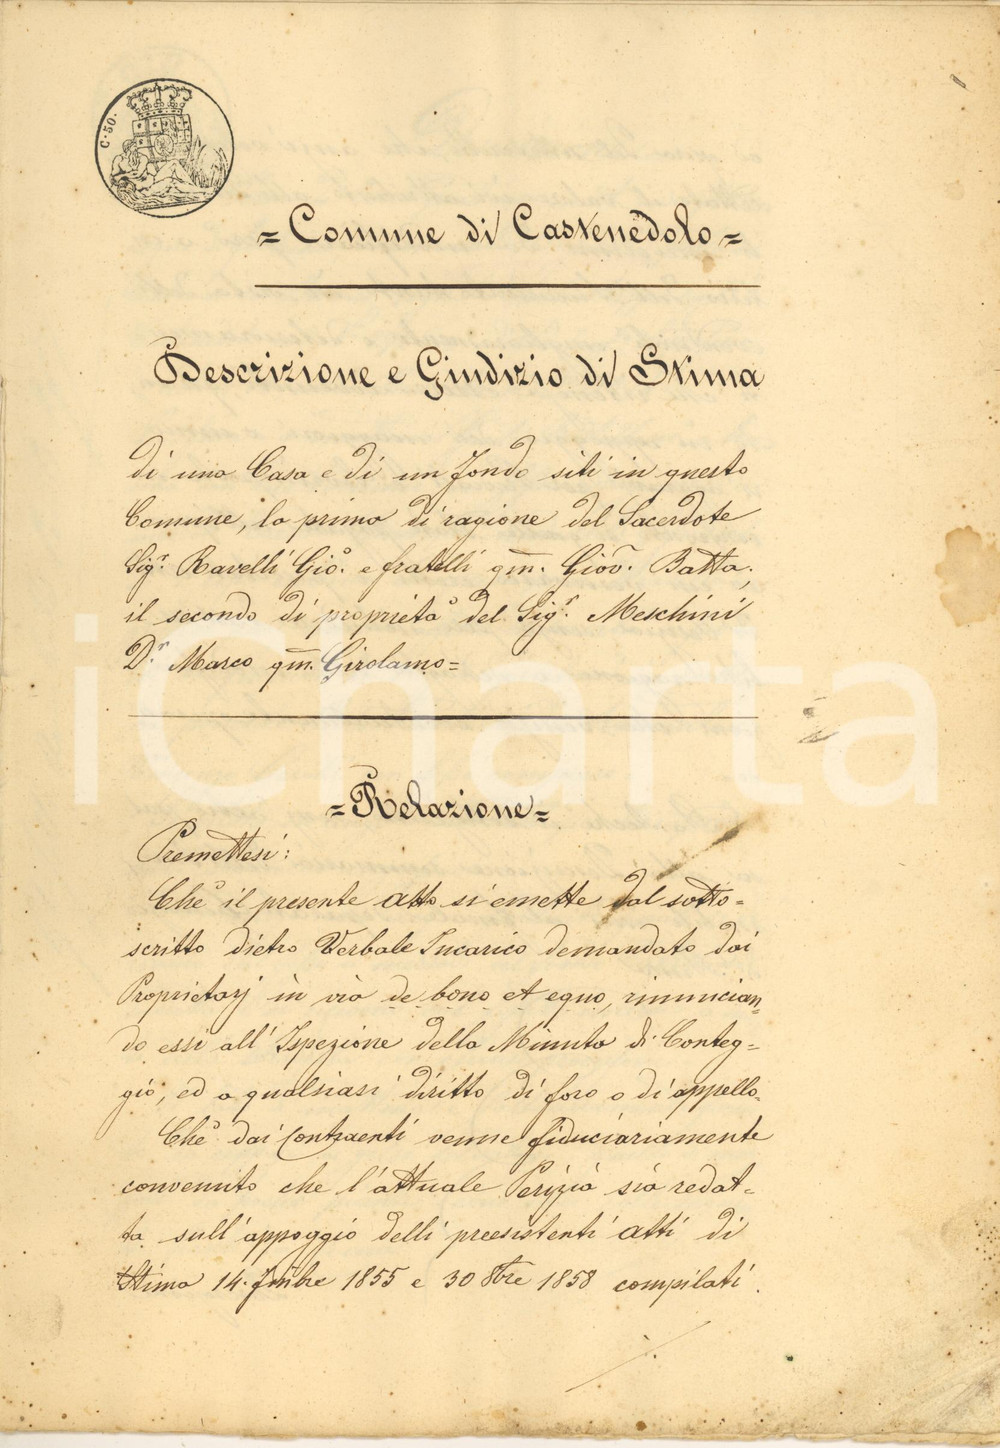 C. 50.
= Comune di Castenedolo =
Descrizione e Giudizio di Stima
di una Casa e di un fondo siti in questo
Comune, la prima di ragione del Sacerdote
Sig.r Ravelli Gio. e fratelli qm. Giov. Batta.,
il secondo di proprietà del Sig.r Meschini
D.r Marco qm. Girolamo =
= Relazione =
Premettesi:
Chè il presente atto si emette dal sotto=
scritto dietro Verbale Incarico demandato dai
Proprietarj in via de bono et equo, rinuncian=
do essi all'Ispezione della Minuta di Conteg=
gio, ed a qualsiasi diritto di foro o di appello.
Chè dai Contraenti venne fiduciariamente
convenuto che l'attuale Perizia sia redat=
ta sull'appoggio delli preesistenti atti di
Stima 14. 1855 e 30 8bre 1858 compilati
./.
iCharta